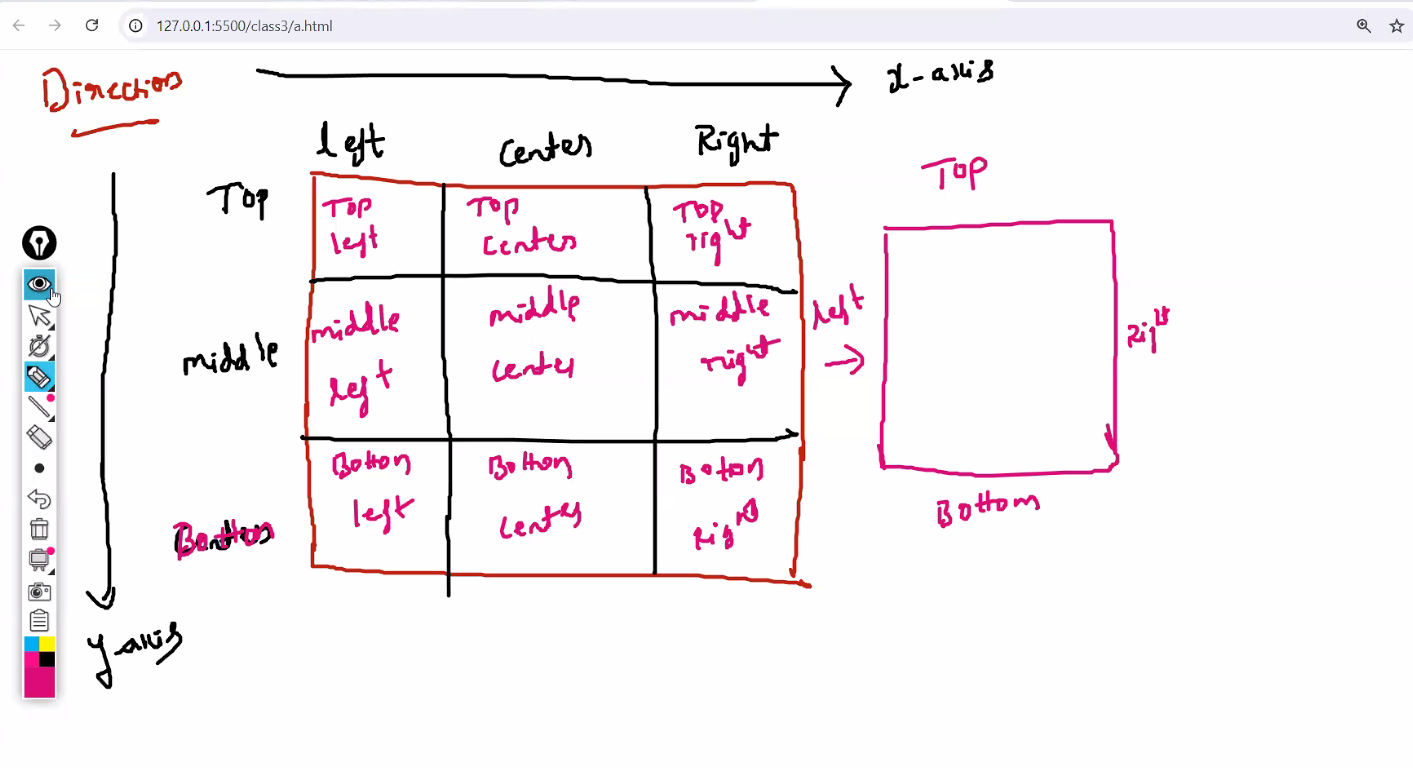 127.0.0.1:5500/class3/a.html
Direction
x-axis
left Center Right
Top
Top left
Top center
Top right
middle
middle left
middle center
middle right
Bottom
Botton left
Botton center
Boton
y axis
Top
left
Right
Bottom